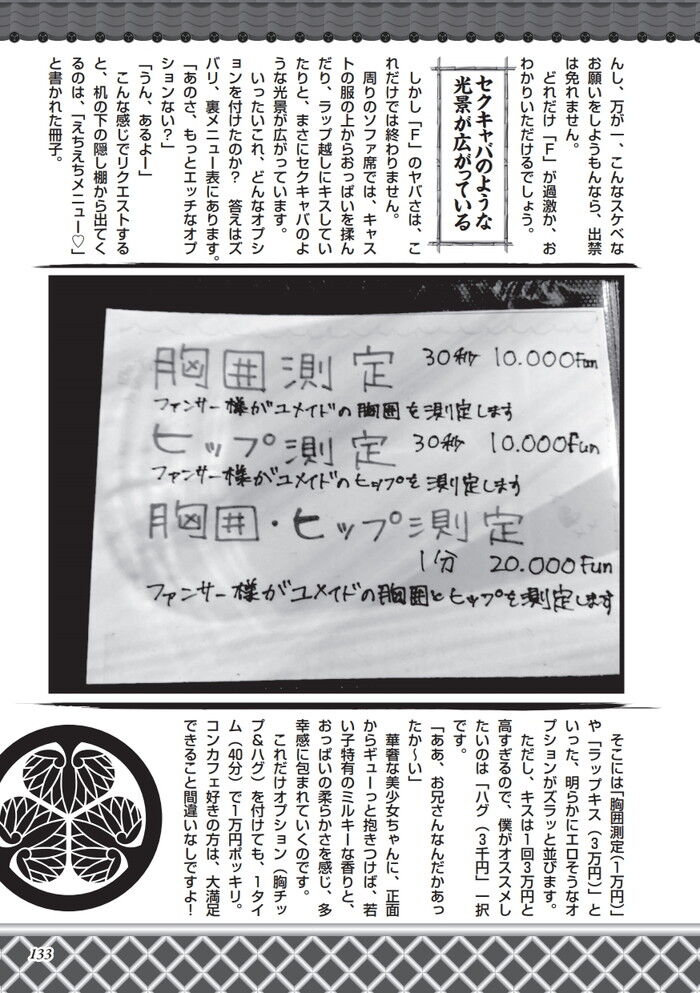 んし、万が一、こんなスケベな
お願いをしようもんなら、出禁
は免れません。
どれだけ「F」が過激か、お
わかりいただけるでしょう。
セクキャバのような
光景が広がっている
しかし「F」のヤバさは、こ
れだけでは終わりません。
周りのソファ席では、キャス
トの服の上からおっぱいを揉ん
だり、ラップ越しにキスしてい
たりと、まさにセクキャバのよ
うな光景が広がっています。
いったいこれ、どんなオプシ
ョンを付けたのか？　答えはズ
バリ、裏メニュー表にあります。
「あのさ、もっとエッチなオプ
ションない？」
「うん、あるよー」
こんな感じでリクエストする
と、机の下の隠し棚から出てく
るのは、「えちえちメニュー♡」
と書かれた冊子。
胸囲測定 30秒 10.000Fun
ファンサー様がユメイドの胸囲を測定します
ヒップ測定 30秒 10.000Fun
ファンサー様がユメイドのヒップを測定します
胸囲・ヒップ測定
1分 20.000Fun
ファンサー様がユメイドの胸囲とヒップを測定します
そこには「胸囲測定（1万円）」
や「ラップキス（3万円）」と
いった、明らかにエロそうなオ
プションがズラッと並びます。
ただし、キスは1回3万円と
高すぎるので、僕がオススメし
たいのは「ハグ（3千円）」一択
です。
「ああ、お兄さんなんだかあっ
たか〜い」
華奢な美少女ちゃんに、正面
からギューっと抱きつけば、若
い子特有のミルキーな香りと、
おっぱいの柔らかさを感じ、多
幸感に包まれていくのです。
これだけオプション（胸チッ
プ&ハグ）を付けても、1タイ
ム（40分）で1万円ポッキリ。
コンカフェ好きの方は、大満足
できること間違いなしですよ！
133